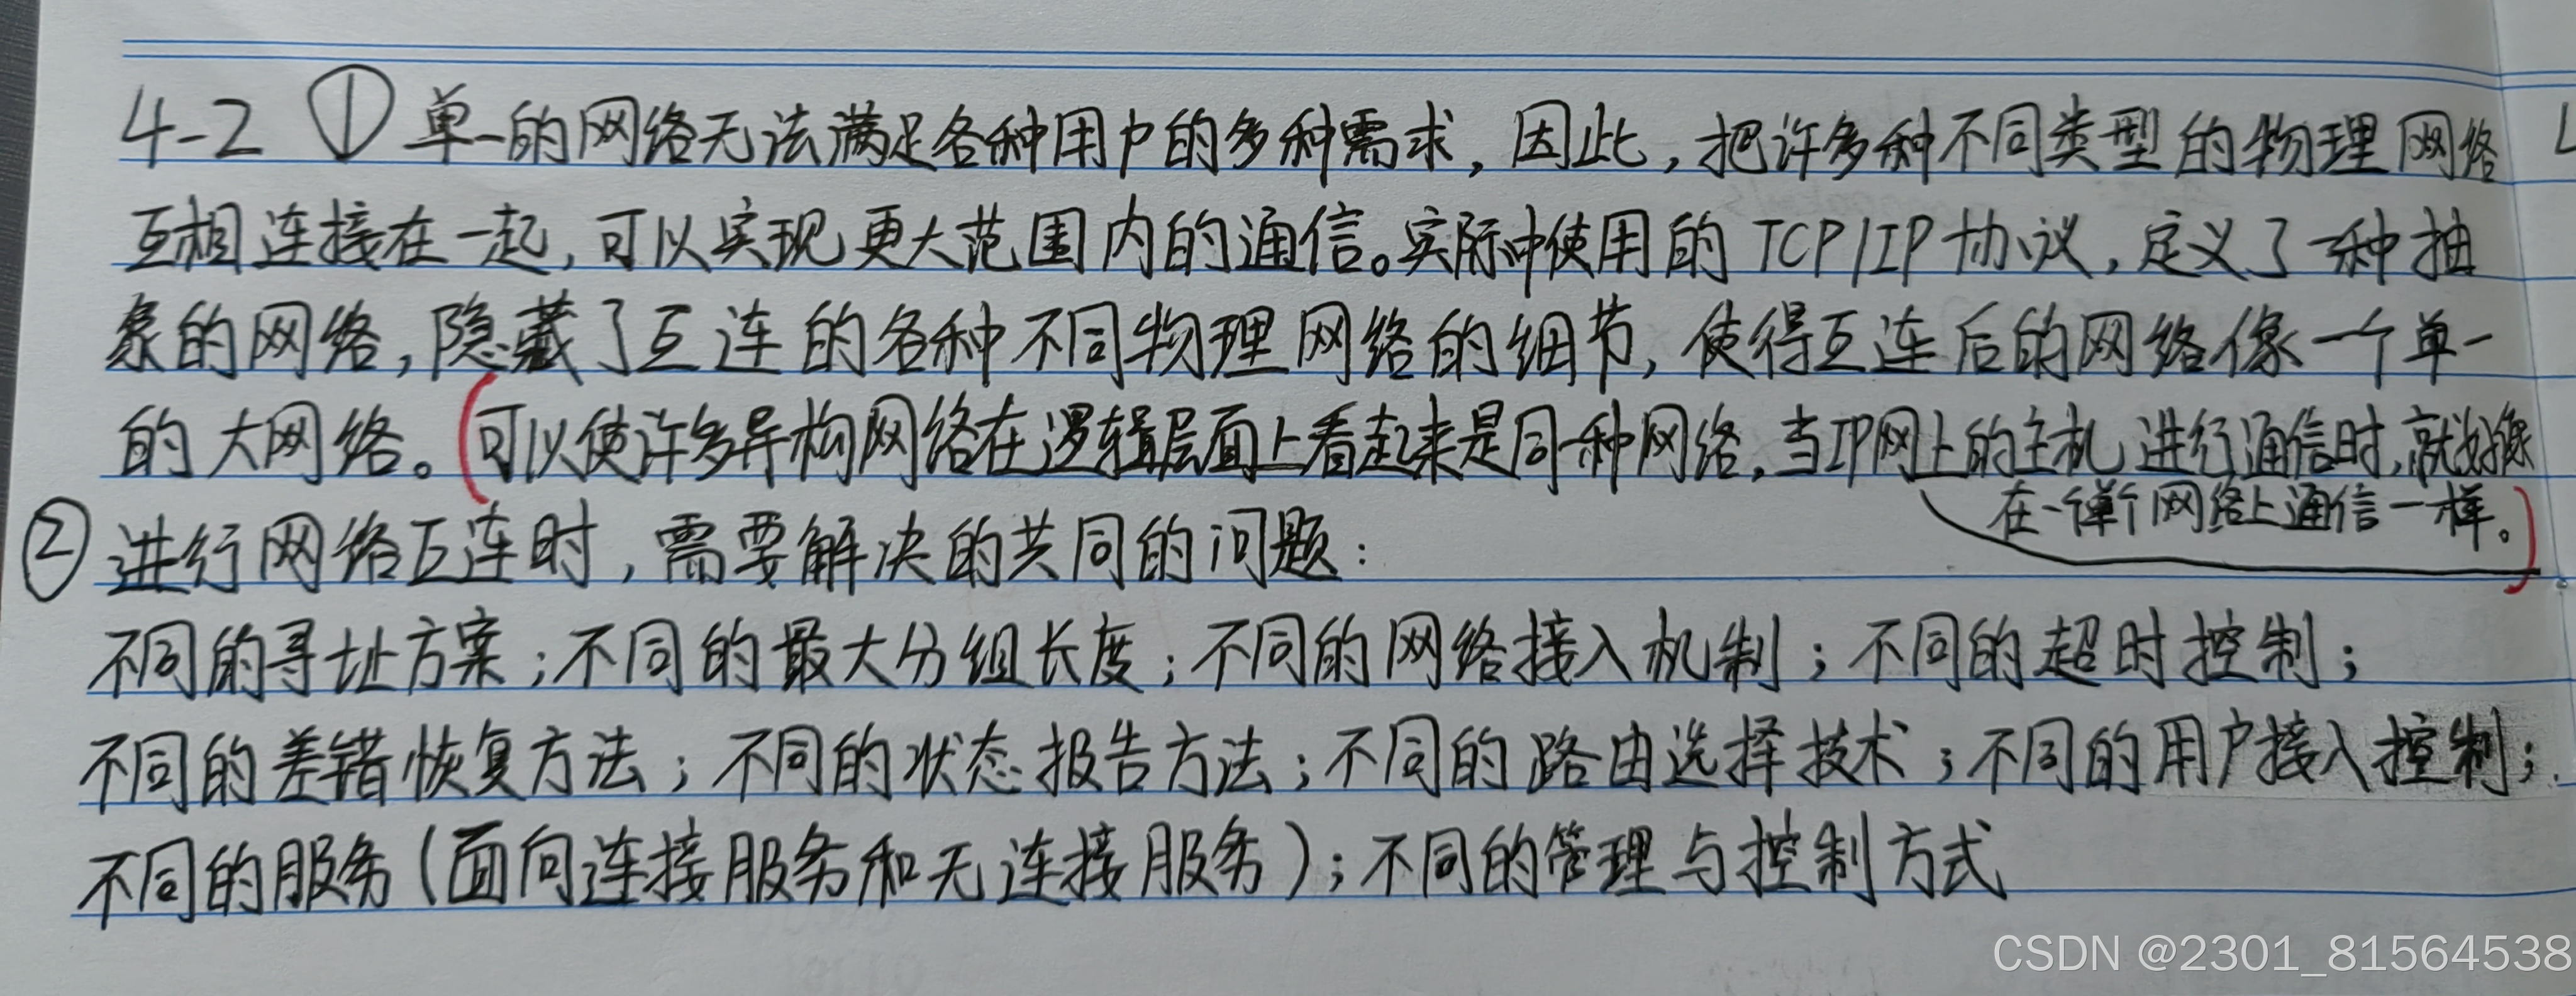 4-2 ① 单一的网络无法满足各种用户的多种需求，因此，把许多种不同类型的物理网络
互相连接在一起，可以实现更大范围内的通信。实际中使用的TCP/IP协议，定义了一种抽
象的网络，隐藏了互连的各种不同物理网络的细节，使得互连后的网络像一个单一
的大网络。(可以使许多异构网络在逻辑层面上看起来是同一种网络，当IP网上的主机进行通信时，就好像
在一个单个网络上通信一样。)
② 进行网络互连时，需要解决的共同的问题：
不同的寻址方案；不同的最大分组长度；不同的网络接入机制；不同的超时控制；
不同的差错恢复方法；不同的状态报告方法；不同的路由选择技术；不同的用户接入控制；
不同的服务(面向连接服务和无连接服务)；不同的管理与控制方式
CSDN @2301_81564538